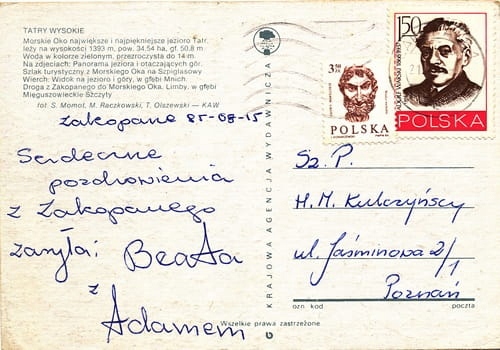 TATRY WYSOKIE
Morskie Oko największe i najpiękniejsze jezioro Tatr,
leży na wysokości 1393 m, pow. 34.54 ha, gł. 50.8 m
Woda w kolorze zielonym, przezroczysta do 14 m.
Na zdjęciach: Panorama jeziora i otaczających gór.
Szlak turystyczny z Morskiego Oka na Szpiglasowy
Wierch: Widok na jezioro i góry, w głębi Mnich.
Droga z Zakopanego do Morskiego Oka. Limby. W głębi
Mięguszowieckie Szczyty
fot. S. Momot, M. Raczkowski, T. Olszewski — KAW
Zakopane 85-08-15
Serdeczne
pozdrowienia
z Zakopanego
zasyła;
Beata
z
Adamem
Wszelkie prawa zastrzeżone
KRAJOWA AGENCJA WYDAWNICZA
3,50 ZŁ
POLSKA
150
POLSKA
Sz. P.
H. M. Kulczyńscy
ul. Jaśminowa 2/1
Poznań
ozn. kod
poczta